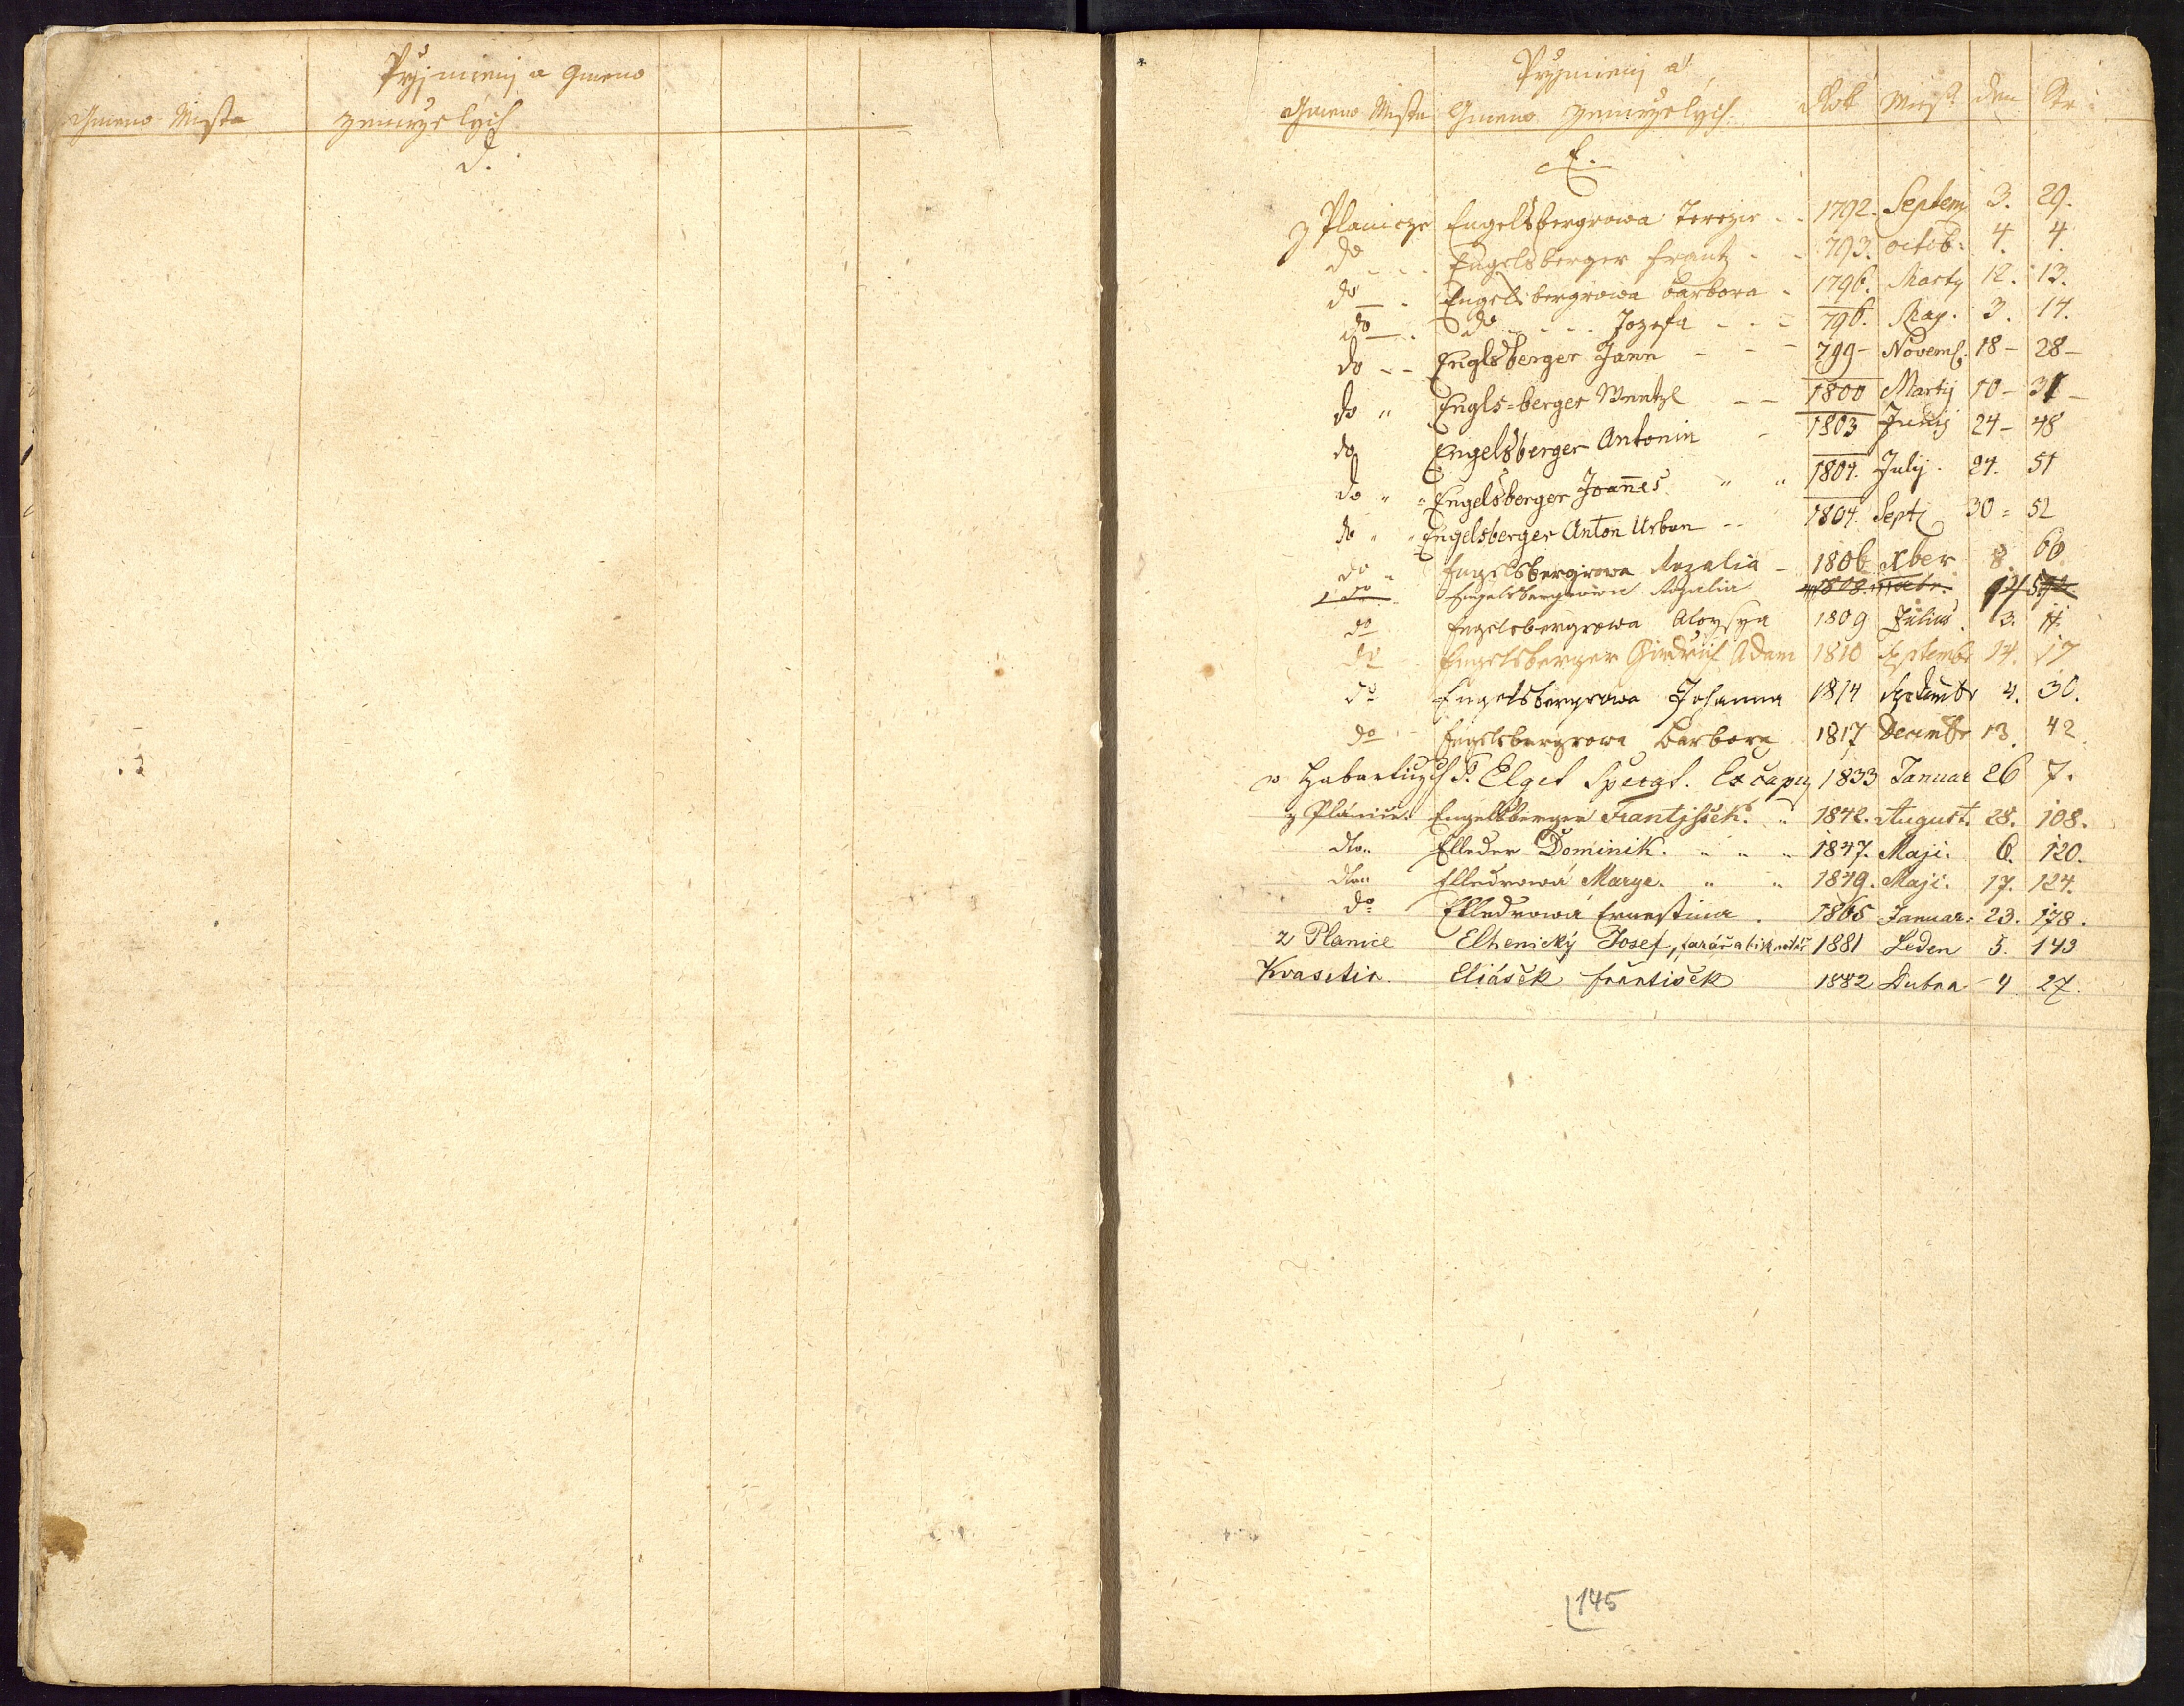 Pržjmienj a Gmeno
Gmeno Mista zemrzelých
D.
Pržjmienj a
Gmeno Mista Gmeno zemrzelých. Rok Mies. den Str.
E.
z Planicze Engelsbergrowa Terezie 1792. Septem 3. 29.
do Engelsberger Frantz 793. octob: 4. 4.
do Engelsbergrowa Barbora 1796. Marty 12. 13.
do do Jozefa 796. May. 3. 14.
do Englsberger Jann 799 Novemb. 18 28
do Engls=berger Wentzl 1800 Martij 10 31
do Engelsberger Antonin 1803 Junij 24 48
do Engelsberger Joannes 1804. July. 24. 51
do Engelsberger Anton Urban 1804. Sept 30 = 52
do Engelsbergrowa Rozalia 1806 xber 8. 60
do Engelsbergrowa Rozalia 1808.
do Engelsbergrowa Aloysya 1809 Julius 3. 11.
do Engelsberger Girdržich Adam 1810 Septembr 14. 17
do Engelsbergrowa Johanna 1814 Septembr 4. 30.
do Engelsbergrowa Barbora 1817 Decembr 13. 42
v Habarticzych P. Elget Ex čapuz 1833 Januar 26 7.
z Plánice. Engelsberger Frantjssek. 1842. August. 28. 108.
dto Elleder Dominik. 1847. Maji. 6. 120.
dto Elledrowá Marye. 1849. Maji. 17. 124.
do Elledrowá Ernestina. 1865 Januar: 23. 178.
z Planice Elhenický Josef, farář a bisk. notář 1881 Leden 5. 143
Kvasetic. Eliášek František 1882 Dubna 4. 27.
145